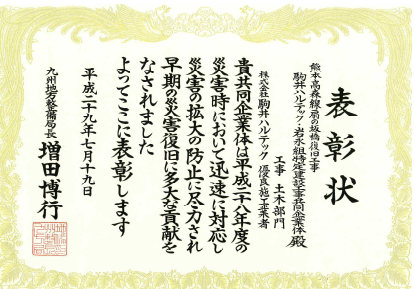 表彰状
熊本高森線扇の坂橋復旧工事
駒井ハルテック・岩永組特定建設工事共同企業体殿
工事 土木部門
株式会社駒井ハルテック 優良施工業者
貴共同企業体は平成二十八年度の
災害時において迅速に対応し
災害の拡大の防止に尽力され
早期の災害復旧に多大な貢献を
なされました
よってここに表彰します
平成二十九年七月十九日
九州地方整備局長 増田博行